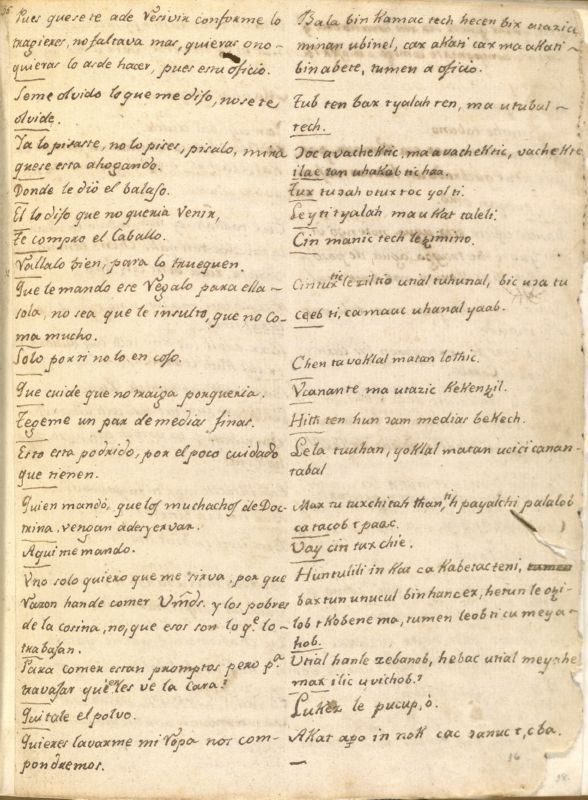 36
Pues quese te ade Vēnivir conforme lo
tragieres, no faltava mas, quieras ono-
quieras lo asde hacer, pues estu oficio.
Seme olvido lo que me dijo, no se te
olvide.
Ya lo pisaste, no lo pises, pisalo, mira
quese esta ahogando.
Donde le dió el balaso.
El lo dijo que no queria Venir,
Te compro el Caballo.
Vallalo bien, para lo trueguen.
Que le mando ese Vēgalo para ella-
sola, no sea que le insulto, que no Co-
ma mucho.
Solo por ti no lo en cojo.
Que cuide que no traiga porqueria.
Tegeme un par de medias finas.
Esto esta podrido, por el poco cuidado
que tienen.
Quien mandó, que los muchachos de Doc-
trina, vengan adesyervar.
Aqui me mando.
Vno solo quiero que me sirva, por que
Vazon hande comer Vmds. y los pobres
de la cosina, no, que esos son lo qe lo-
trabajan.
Para comer estan promptos pero pa
travajar quien les ve la Cara?
Quitale el polvo.
Quieres lavarme mi Vopa nos com-
pondremos.
Bala bin Kamac tech hecen bix atazici
minan ubinel, cax akati cax ma akati-
bin abete, tumen a oficio.
Tub ten bax tyalah ten, ma utubul-
tech.
Joc avachektic, ma avachektic, vachekte
ilae tan uhakab tichaa.
Tux tuzah utux toc yolti.
Leyti tyalah mau Kat taleti.
Cin manic tech letzimino.
Cintuxtic le ziltio utial tuhunal, bic uza tu
ceeb ti, camaac uhanal yaab.
Chen tavoklal matan lothic.
Vcanante ma utazic KeKentzil.
Hitt ten hun zam medias beKech.
Lela tuuhan, yoklal matan ucici canan-
tabal
Max tu tuxchitah than, ti h payalchi palalob
ca tacob tpaac.
Vay cin tuxchie.
Huntulili in Kat ca Kabetac teni, tumen
baxtun unucul bin hancex, hetun le otzi-
lob t Kobene ma, tumen leob ti cu meya-
hob.
Vtial hanle zebanob, hebac utial meyahe
max ilic uvichob?
LuKez le pucup, ò.
AKat apo in noK cac zanuct, cba.
36